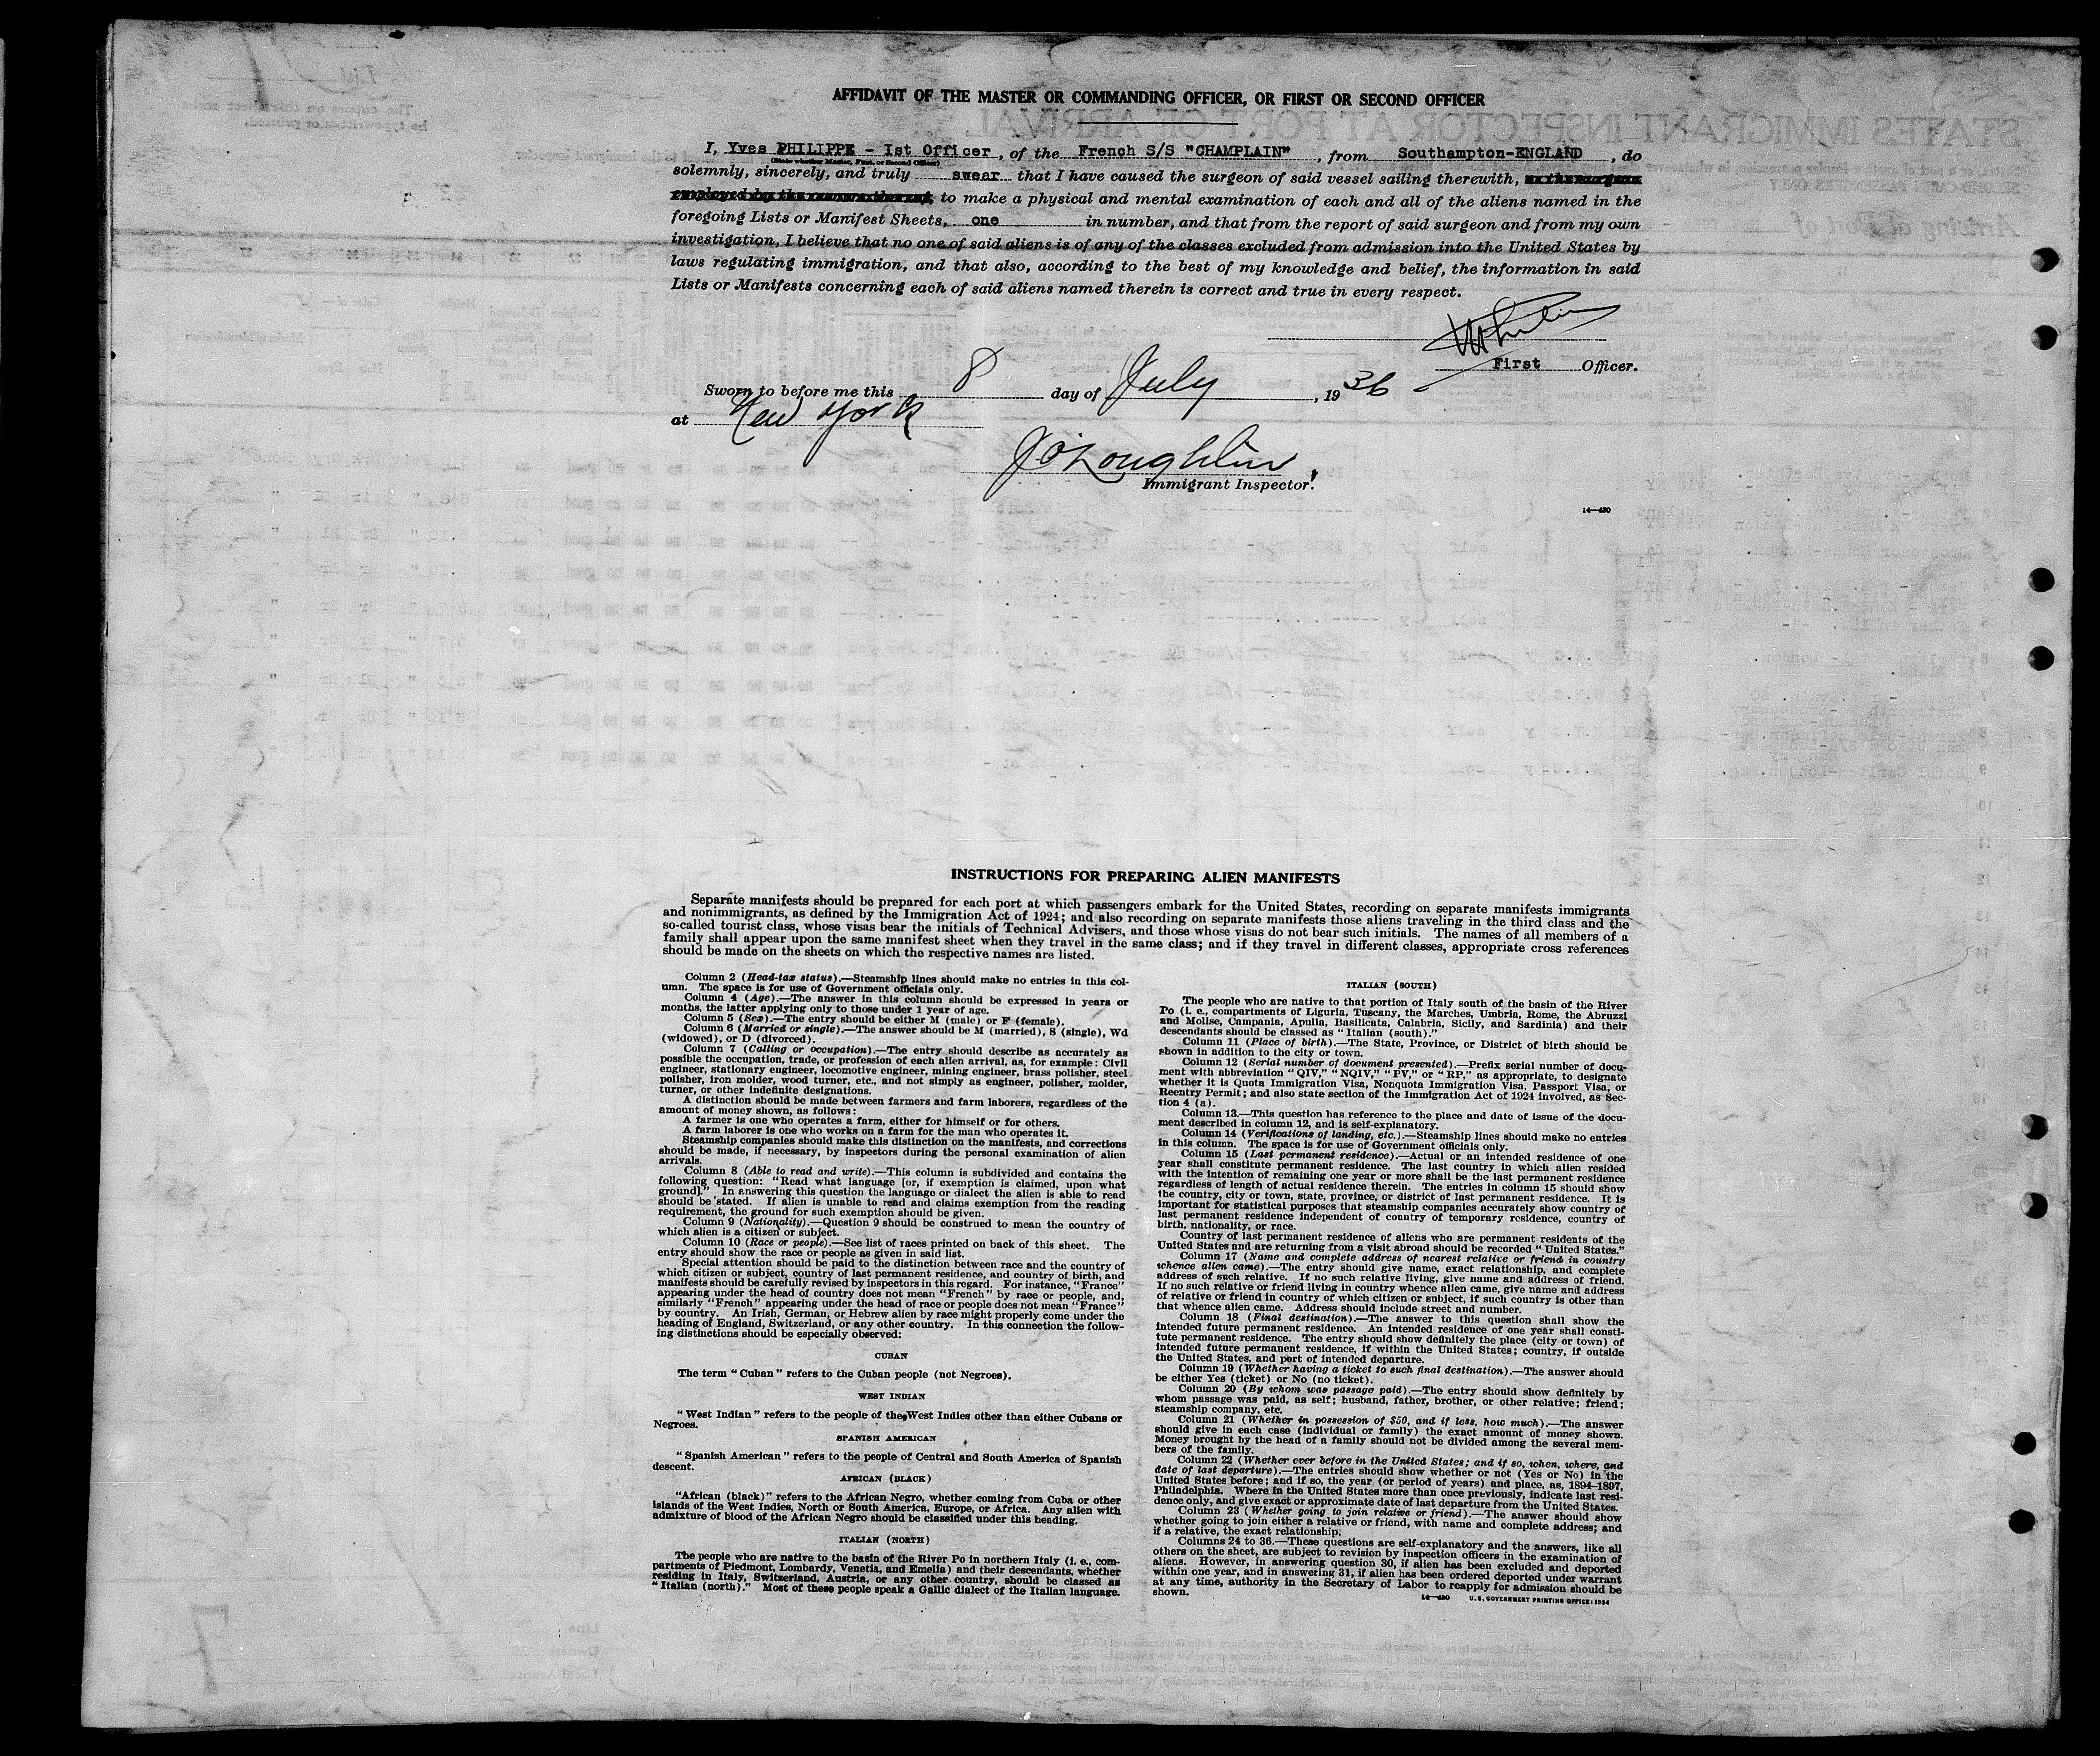 AFFIDAVIT OF THE MASTER OR COMMANDING OFFICER, OR FIRST OR SECOND OFFICER
I, Yves PHILIPPE - Ist Officer, of the French S/S "CHAMPLAIN", from Southampton-ENGLAND, do
(State whether Master, First, or Second Officer)
solemnly, sincerely, and truly swear that I have caused the surgeon of said vessel sailing therewith,
to make a physical and mental examination of each and all of the aliens named in the
foregoing Lists or Manifest Sheets, one in number, and that from the report of said surgeon and from my own
investigation, I believe that no one of said aliens is of any of the classes excluded from admission into the United States by
laws regulating immigration, and that also, according to the best of my knowledge and belief, the information in said
Lists or Manifests concerning each of said aliens named therein is correct and true in every respect.
First Officer.
Sworn to before me this 8 day of July, 1936
at New York
J O'Loughlin
Immigrant Inspector.
14—430
INSTRUCTIONS FOR PREPARING ALIEN MANIFESTS
Separate manifests should be prepared for each port at which passengers embark for the United States, recording on separate manifests immigrants
and nonimmigrants, as defined by the Immigration Act of 1924; and also recording on separate manifests those aliens traveling in the third class and the
so-called tourist class, whose visas bear the initials of Technical Advisers, and those whose visas do not bear such initials. The names of all members of a
family shall appear upon the same manifest sheet when they travel in the same class; and if they travel in different classes, appropriate cross references
should be made on the sheets on which the respective names are listed.
Column 2 (Head-tax status).—Steamship lines should make no entries in this col-
umn. The space is for use of Government officials only.
Column 4 (Age).—The answer in this column should be expressed in years or
months, the latter applying only to those under 1 year of age.
Column 5 (Sex).—The entry should be either M (male) or F (female).
Column 6 (Married or single).—The answer should be M (married), S (single), Wd
(widowed), or D (divorced).
Column 7 (Calling or occupation).—The entry should describe as accurately as
possible the occupation, trade, or profession of each alien arrival, as, for example: Civil
engineer, stationary engineer, locomotive engineer, mining engineer, brass polisher, steel
polisher, iron molder, wood turner, etc., and not simply as engineer, polisher, molder,
turner, or other indefinite designations.
A distinction should be made between farmers and farm laborers, regardless of the
amount of money shown, as follows:
A farmer is one who operates a farm, either for himself or for others.
A farm laborer is one who works on a farm for the man who operates it.
Steamship companies should make this distinction on the manifests, and corrections
should be made, if necessary, by inspectors during the personal examination of alien
arrivals.
Column 8 (Able to read and write).—This column is subdivided and contains the
following question: "Read what language [or, if exemption is claimed, upon what
ground]." In answering this question the language or dialect the alien is able to read
should be stated. If alien is unable to read and claims exemption from the reading
requirement, the ground for such exemption should be given.
Column 9 (Nationality).—Question 9 should be construed to mean the country of
which alien is a citizen or subject.
Column 10 (Race or people).—See list of races printed on back of this sheet. The
entry should show the race or people as given in said list.
Special attention should be paid to the distinction between race and the country of
which citizen or subject, country of last permanent residence, and country of birth, and
manifests should be carefully revised by inspectors in this regard. For instance, "France"
appearing under the head of country does not mean "French" by race or people, and,
similarly "French" appearing under the head of race or people does not mean "France"
by country. An Irish, German, or Hebrew alien by race might properly come under the
heading of England, Switzerland, or any other country. In this connection the follow-
ing distinctions should be especially observed:
CUBAN
The term "Cuban" refers to the Cuban people (not Negroes).
WEST INDIAN
"West Indian" refers to the people of the West Indies other than either Cubans or
Negroes.
SPANISH AMERICAN
"Spanish American" refers to the people of Central and South America of Spanish
descent.
AFRICAN (BLACK)
"African (black)" refers to the African Negro, whether coming from Cuba or other
islands of the West Indies, North or South America, Europe, or Africa. Any alien with
admixture of blood of the African Negro should be classified under this heading.
ITALIAN (NORTH)
The people who are native to the basin of the River Po in northern Italy (i. e., com-
partments of Piedmont, Lombardy, Venetia, and Emelia) and their descendants, whether
residing in Italy, Switzerland, Austria, or any other country, should be classed as
"Italian (north)." Most of these people speak a Gallic dialect of the Italian language.
ITALIAN (SOUTH)
The people who are native to that portion of Italy south of the basin of the River
Po (i. e., compartments of Liguria, Tuscany, the Marches, Umbria, Rome, the Abruzzi
and Molise, Campania, Apulia, Basilicata, Calabria, Sicily, and Sardinia) and their
descendants should be classed as "Italian (south)."
Column 11 (Place of birth).—The State, Province, or District of birth should be
shown in addition to the city or town.
Column 12 (Serial number of document presented).—Prefix serial number of docu-
ment with abbreviation "QIV," "NQIV," "PV," or "RP," as appropriate, to designate
whether it is Quota Immigration Visa, Nonquota Immigration Visa, Passport Visa, or
Reentry Permit; and also state section of the Immigration Act of 1924 involved, as Sec-
tion 4 (a).
Column 13.—This question has reference to the place and date of issue of the docu-
ment described in column 12, and is self-explanatory.
Column 14 (Verifications of landing, etc.).—Steamship lines should make no entries
in this column. The space is for use of Government officials only.
Column 15 (Last permanent residence).—Actual or an intended residence of one
year shall constitute permanent residence. The last country in which alien resided
with the intention of remaining one year or more shall be the last permanent residence
regardless of length of actual residence therein. The entries in column 15 should show
the country, city or town, state, province, or district of last permanent residence. It is
important for statistical purposes that steamship companies accurately show country of
last permanent residence independent of country of temporary residence, country of
birth, nationality, or race.
Country of last permanent residence of aliens who are permanent residents of the
United States and are returning from a visit abroad should be recorded "United States."
Column 17 (Name and complete address of nearest relative or friend in country
whence alien came).—The entry should give name, exact relationship, and complete
address of such relative. If no such relative living, give name and address of friend.
If no such relative or friend living in country whence alien came, give name and address
of relative or friend in country of which citizen or subject, if such country is other than
that whence alien came. Address should include street and number.
Column 18 (Final destination).—The answer to this question shall show the
intended future permanent residence. An intended residence of one year shall consti-
tute permanent residence. The entry should show definitely the place (city or town) of
intended future permanent residence, if within the United States; country, if outside
the United States, and port of intended departure.
Column 19 (Whether having a ticket to such final destination).—The answer should
be either Yes (ticket) or No (no ticket).
Column 20 (By whom was passage paid).—The entry should show definitely by
whom passage was paid, as self; husband, father, brother, or other relative; friend;
steamship company, etc.
Column 21 (Whether in possession of $50, and if less, how much).—The answer
should give in each case (individual or family) the exact amount of money shown.
Money brought by the head of a family should not be divided among the several mem-
bers of the family.
Column 22 (Whether ever before in the United States; and if so, when, where, and
date of last departure).—The entries should show whether or not (Yes or No) in the
United States before; and if so, the year (or period of years) and place, as, 1894–1897,
Philadelphia. Where in the United States more than once previously, indicate last resi-
dence only, and give exact or approximate date of last departure from the United States.
Column 23 (Whether going to join relative or friend).—The answer should show
whether going to join either a relative or friend, with name and complete address; and
if a relative, the exact relationship.
Columns 24 to 36.—These questions are self-explanatory and the answers, like all
others on the sheet, are subject to revision by inspection officers in the examination of
aliens. However, in answering question 30, if alien has been excluded and deported
within one year, and in answering 31, if alien has been ordered deported under warrant
at any time, authority in the Secretary of Labor to reapply for admission should be
shown.
14—430 U. S. GOVERNMENT PRINTING OFFICE: 1934